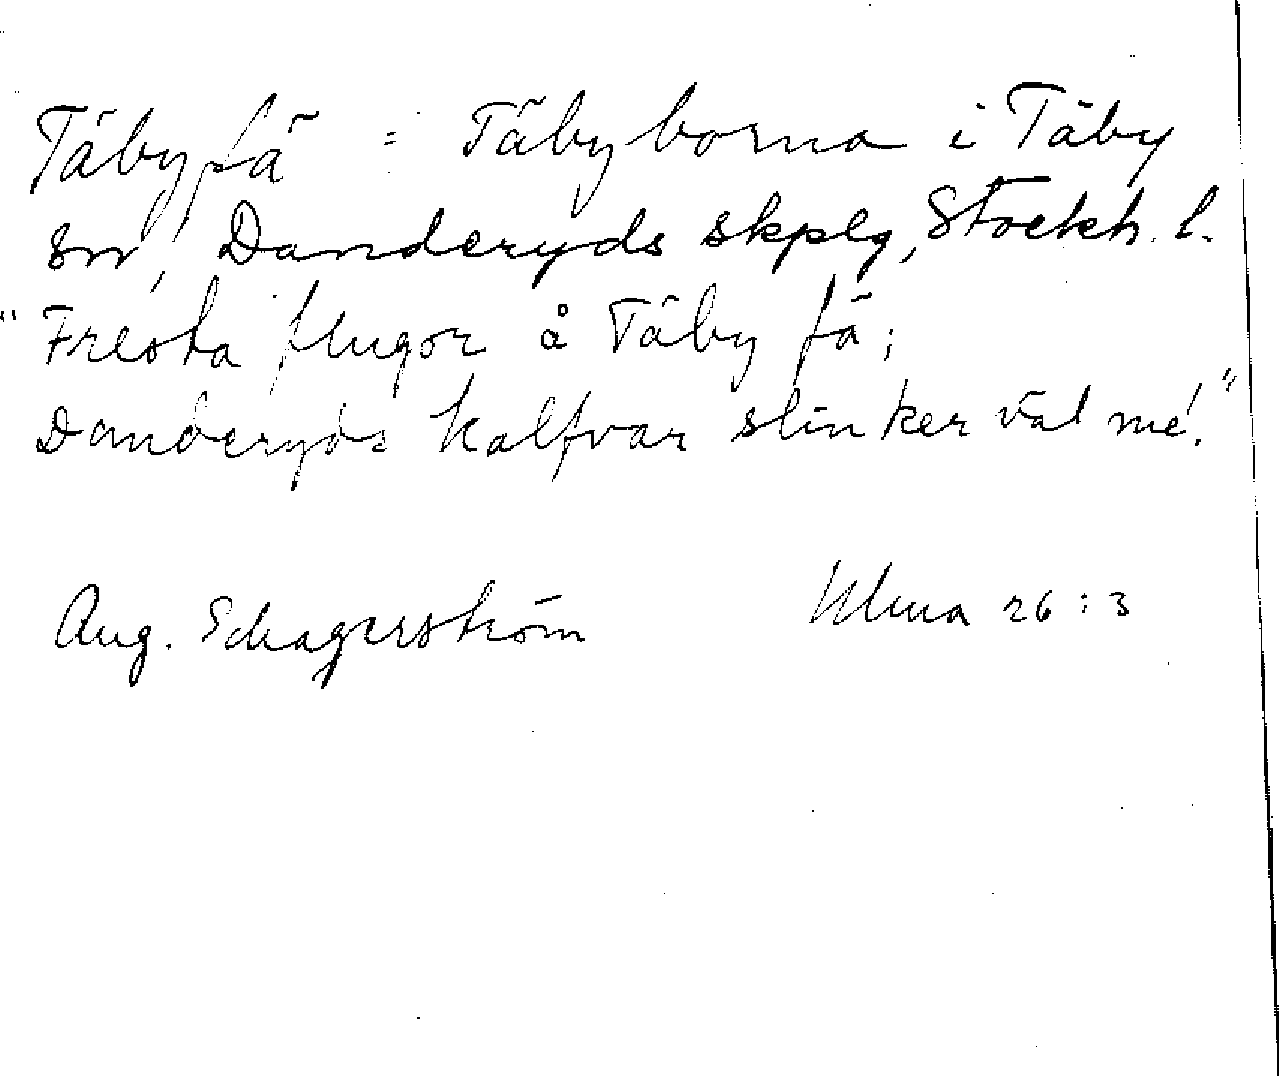 Täbyfä = Täbyborna i Täby
sn, Danderyds skplg, Stockh. l.
"Fresta flugor å Täby fä;
Danderyds kalfvar slinker väl mé."
Aug. Schagerström Ulma 26:3